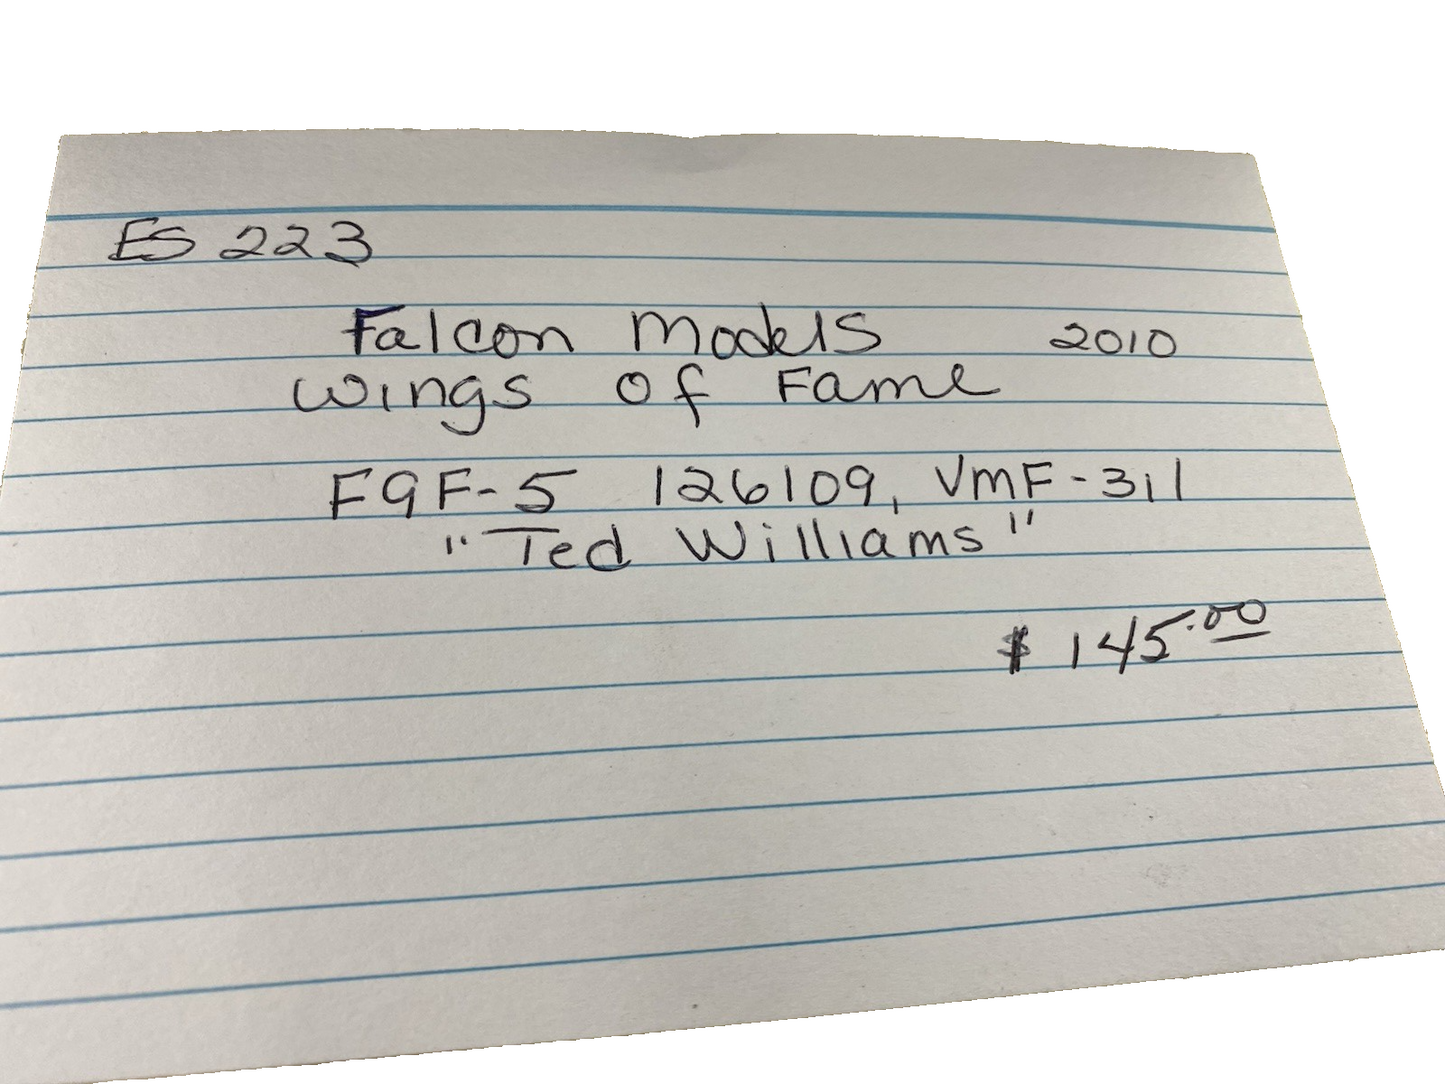 ES 223
Falcon Models 2010
Wings of Fame
F9F-5 126109, VMF-311
"Ted Williams"
$ 145.00